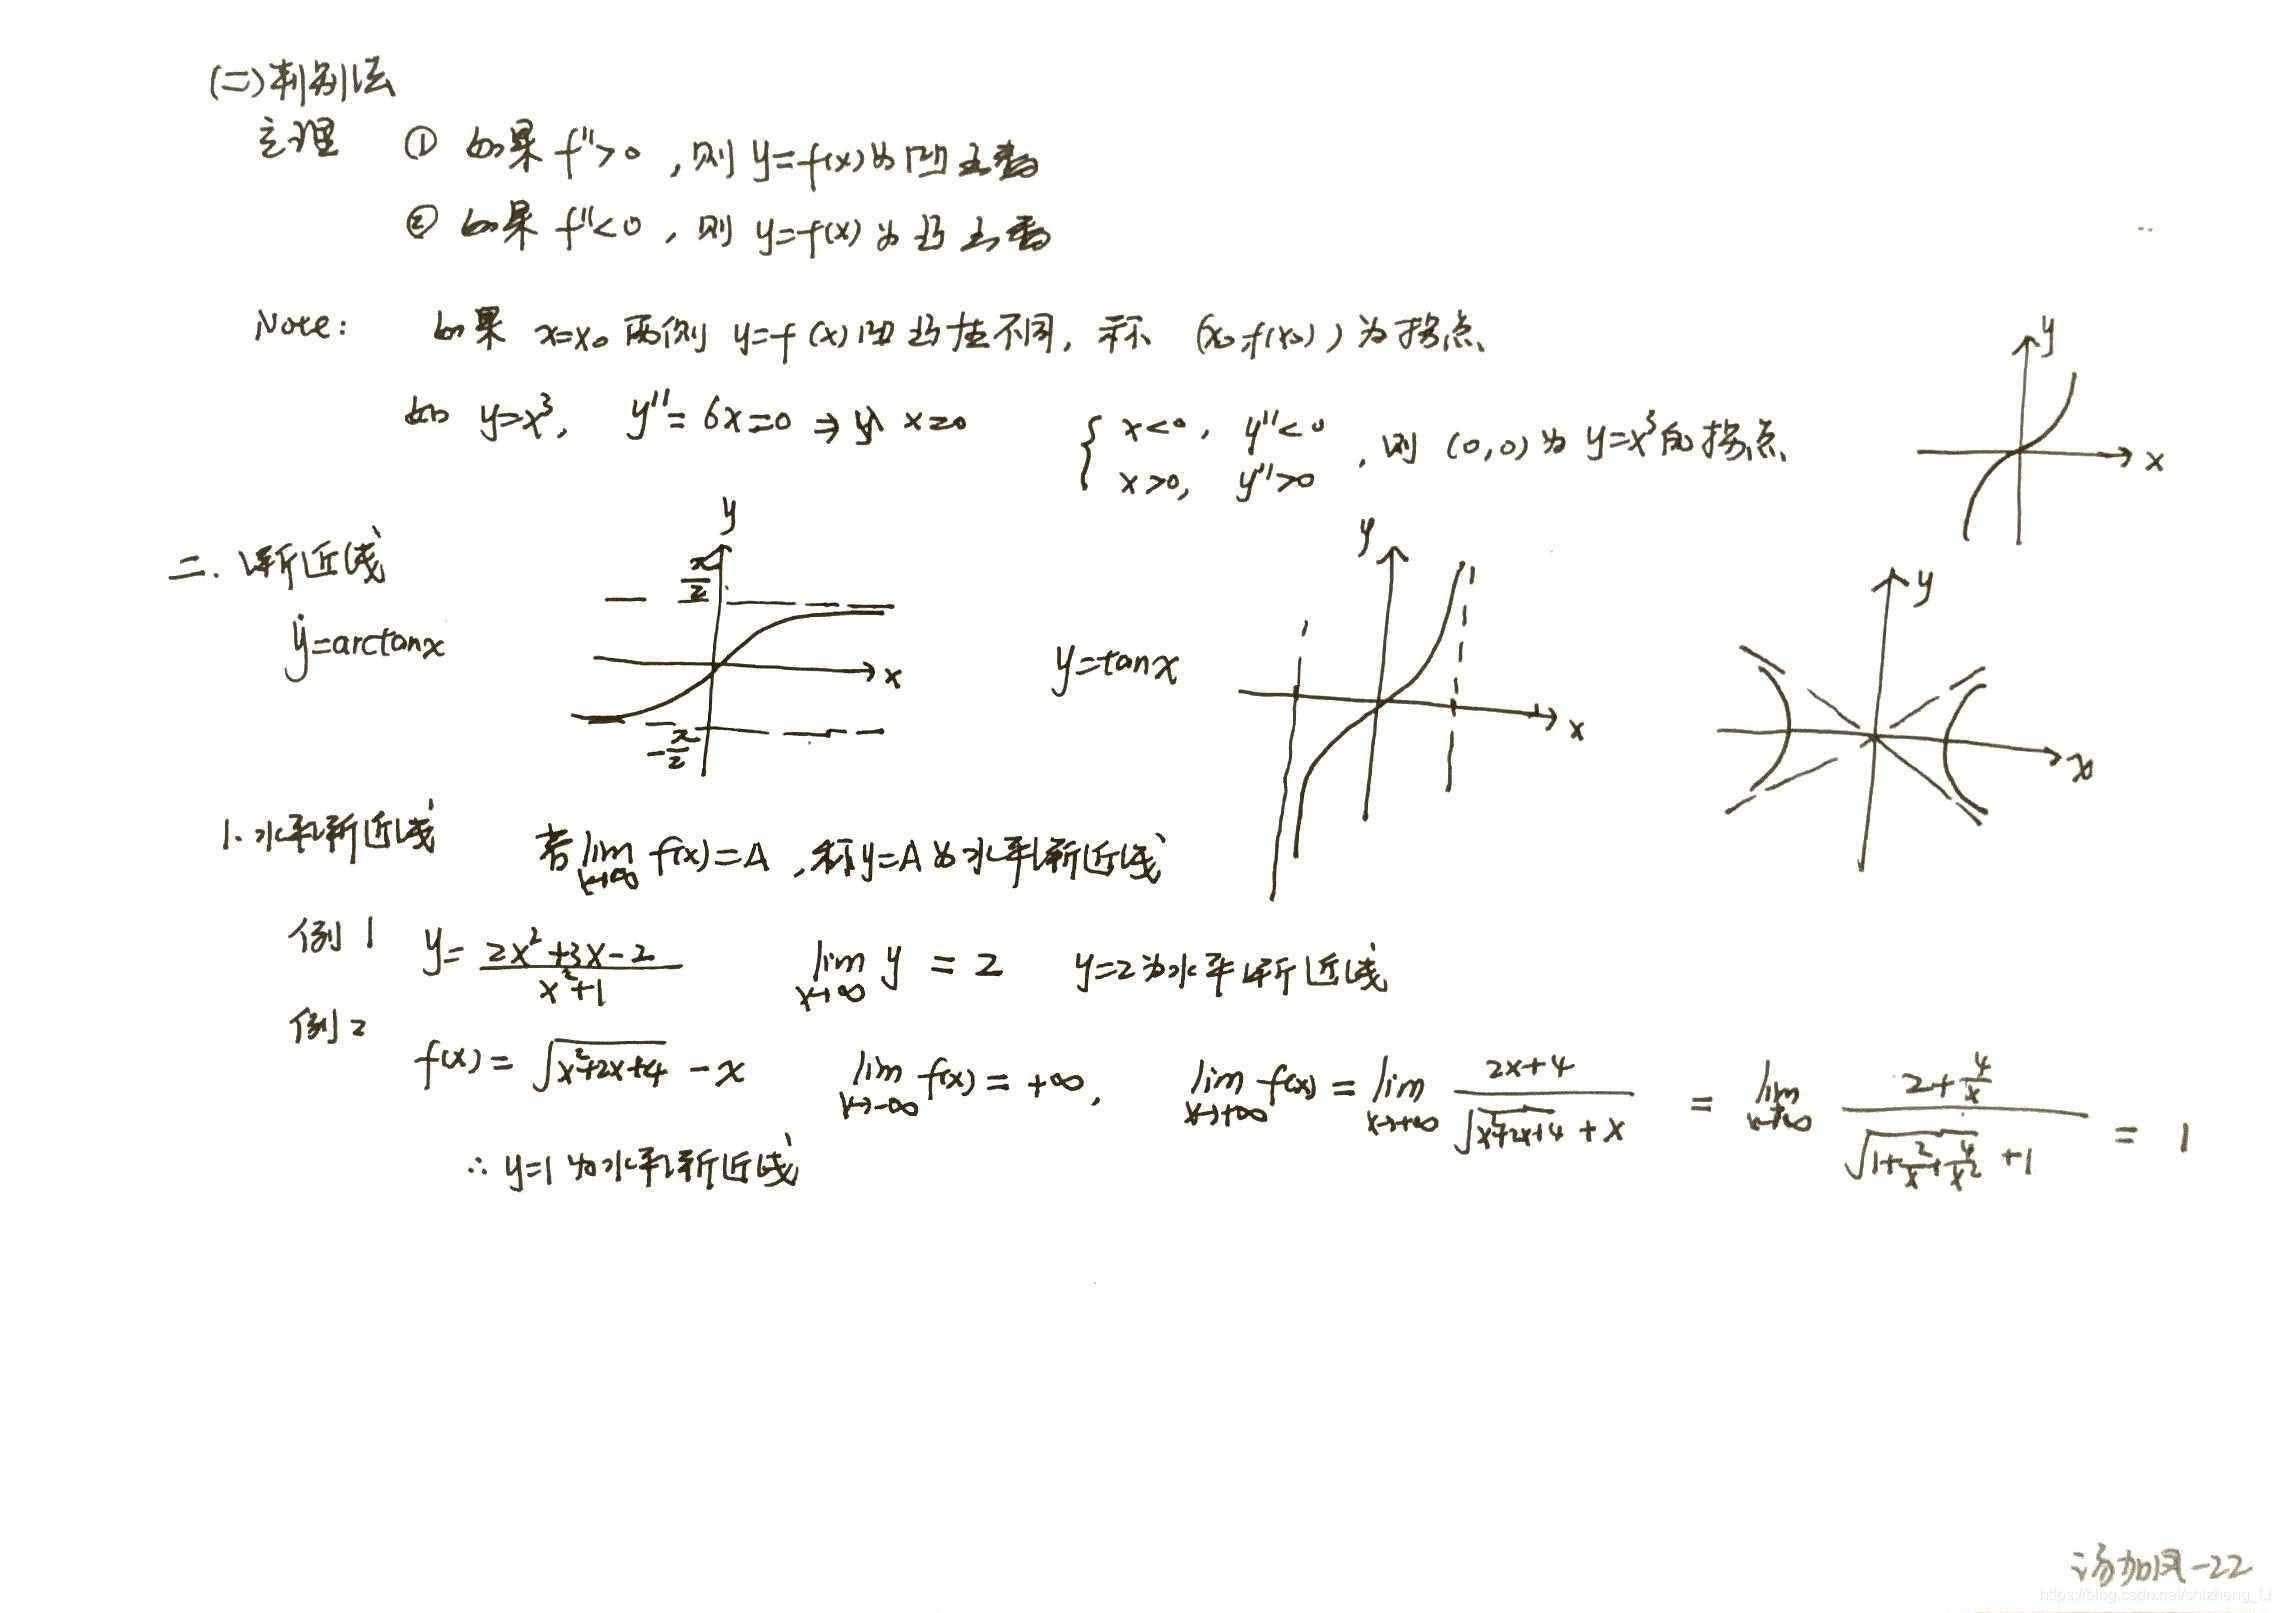 (二)判别法
定理 ① 如果 f''>0 ,则 y=f(x)为凹函数
② 如果 f''<0 ,则 y=f(x) 为凸函数
Note: 如果 x=x₀ 两侧 y=f(x)凹凸性不同, 称 (x₀,f(x₀))为拐点
如 y=x³, y''=6x=0 ⇒ x=0 { x<0, y''<0
x>0, y''>0 ,则 (0,0)为 y=x³的拐点
y
x
二. 渐近线
y=arctanx
y
π/2
x
-π/2
y=tanx
y
x
y
x
1.水平渐近线 若lim x→∞ f(x)=A ,称y=A为水平渐近线
例1 y=(2x²+3x-2)/(x²+1) lim x→∞ y = 2 y=2为水平渐近线
例2 f(x)=√(x²+2x+4) -x lim x→-∞ f(x)=+∞, lim x→+∞ f(x)=lim x→+∞ (2x+4)/(√(x²+2x+4)+x) = lim x→+∞ (2+4/x)/(√(1+2/x+4/x²)+1) = 1
∴ y=1为水平渐近线
汤加凤-22
https://blog.csdn.net/shizheng_Li